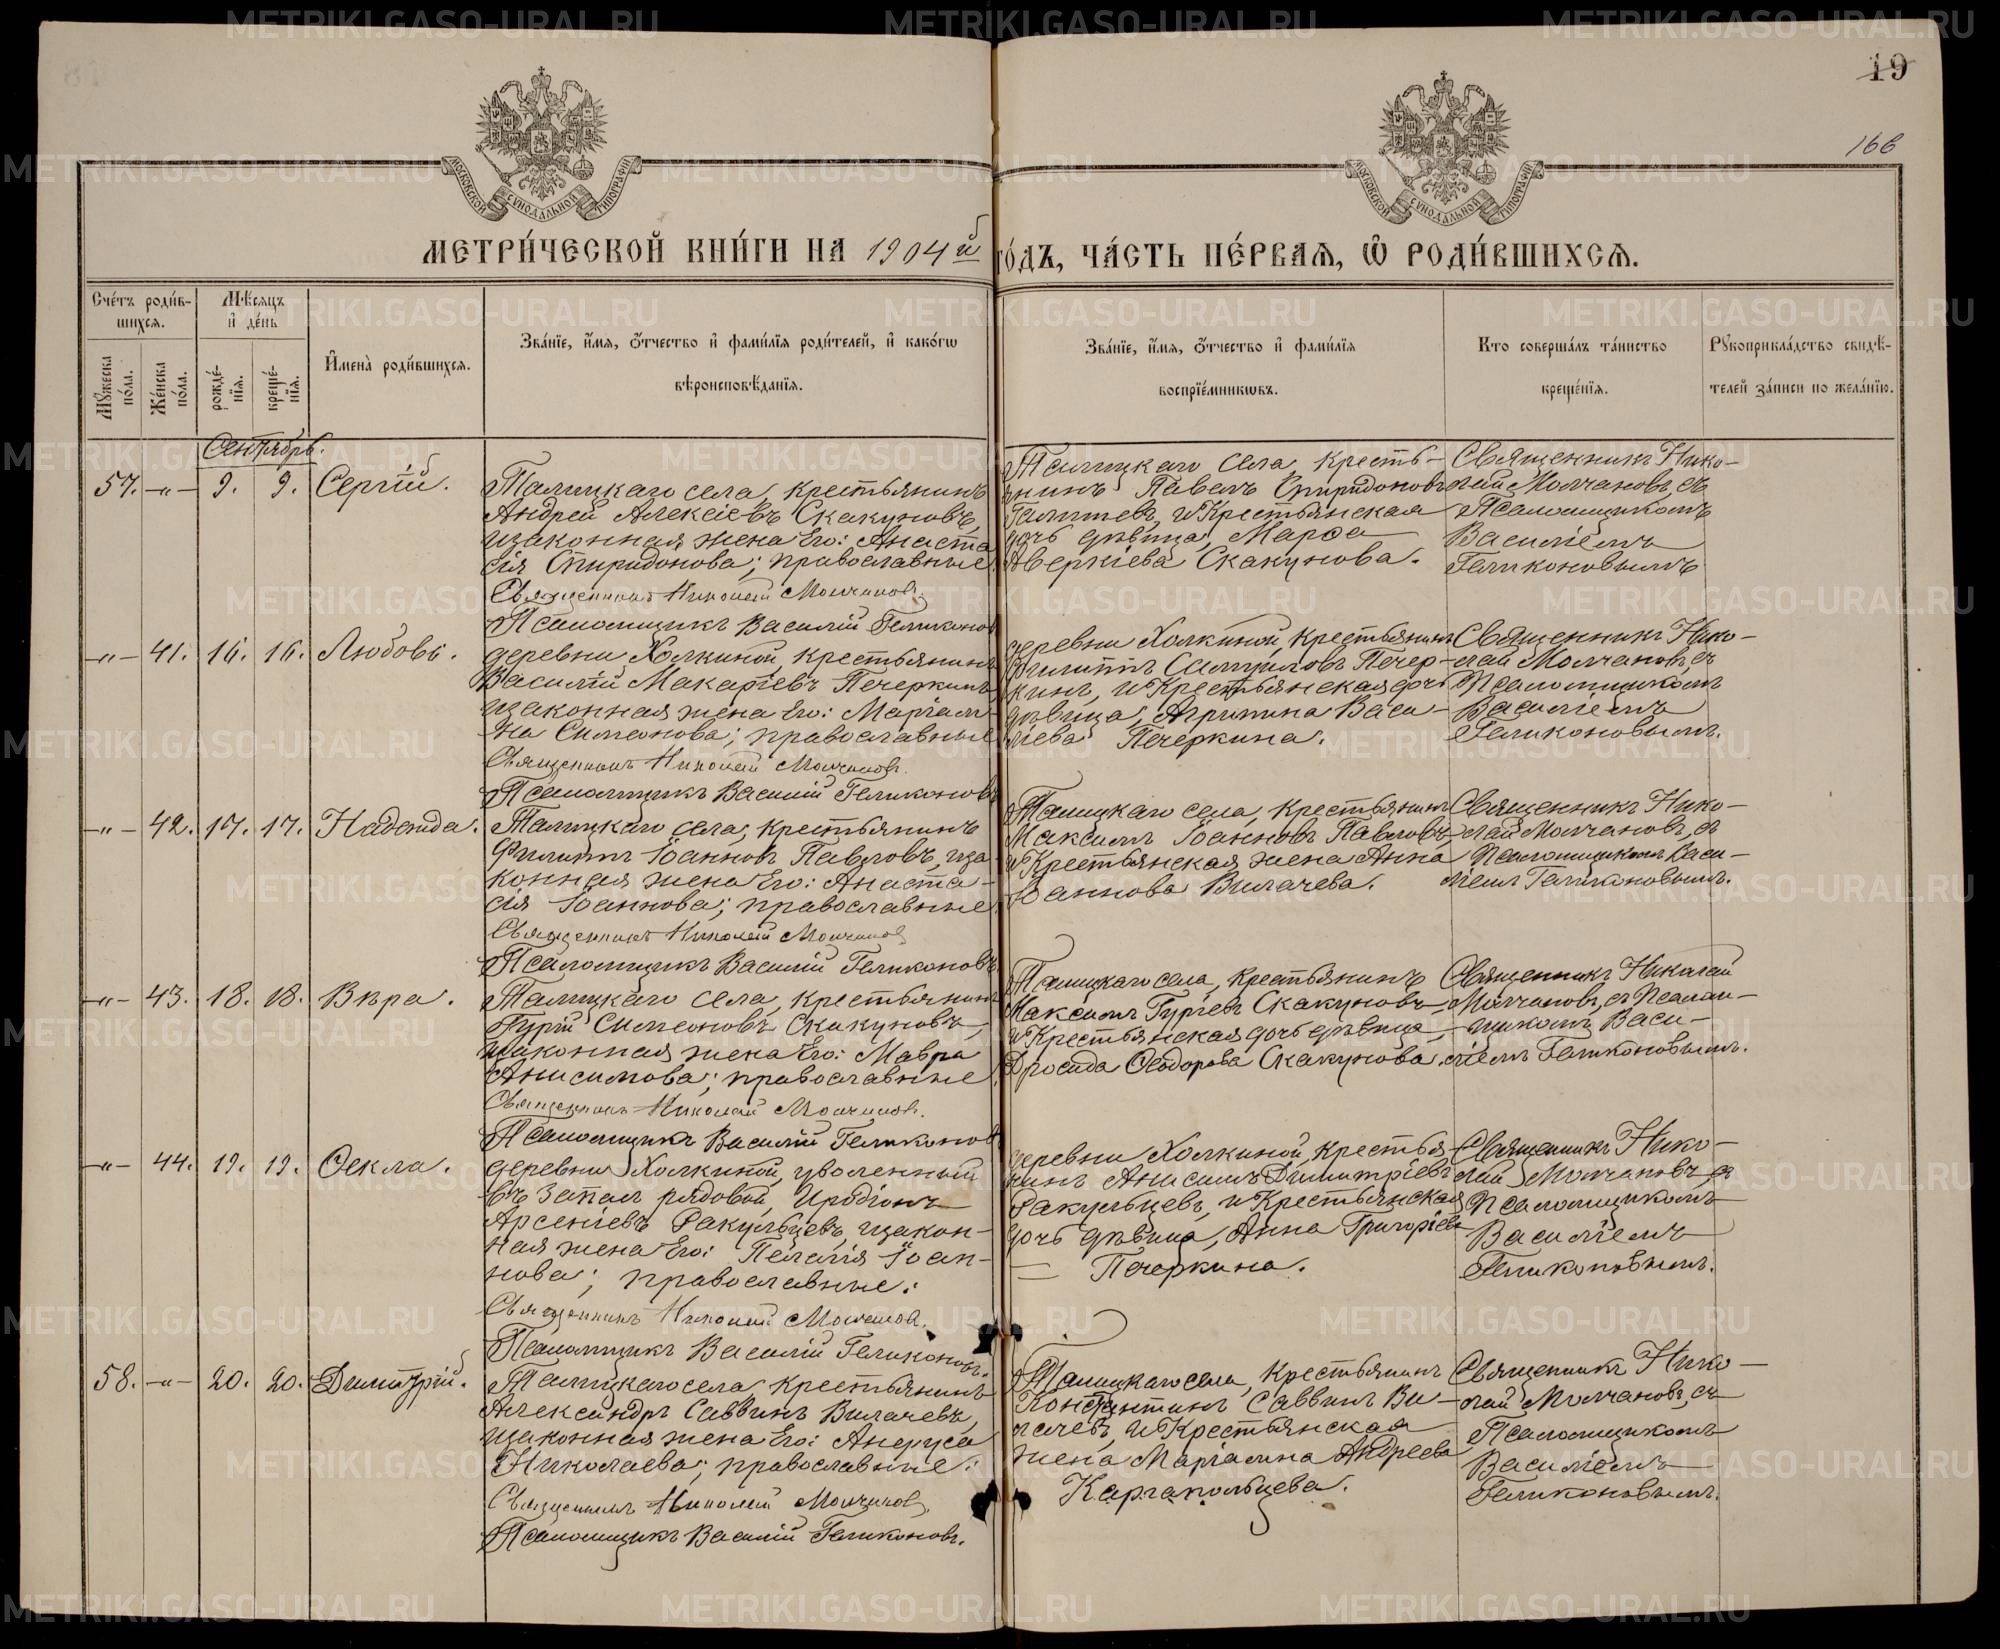 19
166
МОСКОВСКОЙ СѴНОДАЛЬНОЙ ТИПОГРАФІИ
МОСКОВСКОЙ СѴНОДАЛЬНОЙ ТИПОГРАФІИ
МЕТРИ́ЧЕСКОЙ КНИ́ГИ НА 1904й ГО́ДЪ, ЧА́СТЬ ПЕ́РВАЯ, Ѡ҆ РОДИ́ВШИХСЯ.
Сче́тъ роди́в-
шихся.
Мꙋ́жеска по́ла.
Же́нска по́ла.
Мѣ́сяцъ
и҆ де́нь
рожде́-
нїя.
креще́-
нїя.
И҆мена̀ роди́вшихся.
Зва́нїе, и҆́мя, ѻ҆́тчество и҆ фами́лїя роди́телей, и҆ како́гѡ
вѣроисповѣ́данїя.
Зва́нїе, и҆́мя, ѻ҆́тчество и҆ фами́лїя
воспрїе́мникѡвъ.
Кто соверша́лъ та́инство
креще́нїя.
Рꙋкоприкла́дство свидѣ́-
телей за́писи по жела́нїю.
Сентябрь.
57. -"- 9. 9. Сергій.
Талицкаго села, крестьянинъ
Андрей Алексіевъ Скакуновъ,
изаконная жена Его: Анаста
сія Спиридонова; православные.
Священникъ Николай Молчановъ.
Псаломщикъ Василій Геликонов
Талицкаго села, кресть-
янинъ Павелъ Спиридоновъ
Галишевъ, и Крестьянская
дочь дѣвица, Марѳа
Аверкіева Скакунова.
Священникъ Нико-
лай Молчановъ, съ
Псаломщикомъ
Василіемъ
Геликоновымъ
-"- 41. 16. 16. Любовь.
деревни Холкиной, крестьянинъ
Василій Макаріевъ Печеркинъ,
изаконная жена Его: Маріам-
на Симеонова; православные
Священникъ Николай Молчановъ.
Псаломщикъ Василій Геликоновъ
деревни Холкиной, крестьянинъ
Филиппъ Самуиловъ Печер-
кинъ, и Крестьянская дочь
дѣвица, Агрипина Васи-
ліева Печеркина.
Священникъ Нико-
лай Молчановъ, съ
Псаломщикомъ
Василіемъ
Геликоновымъ.
-"- 42. 17. 17. Надежда.
Талицкаго села, крестьянинъ
Филиппъ Іоанновъ Павловъ, иза-
конная жена Его: Анаста-
сія Іоаннова; православные.
Священникъ Николай Молчановъ
Псаломщикъ Василій Геликоновъ
Талицкаго села, крестьянинъ
Максимъ Іоанновъ Павловъ,
и Крестьянская жена Анна
Іоаннова Вилачева.
Священникъ Нико-
лай Молчановъ, съ
Псаломщикомъ Васи-
ліемъ Геликоновымъ.
-"- 43. 18. 18. Вѣра.
Талицкаго села, крестьянинъ
Гурій Симеоновъ Скакуновъ,
изаконная жена Его: Мавра
Анисимова; православные.
Священникъ Николай Молчановъ.
Псаломщикъ Василій Геликонов
Талицкаго села, крестьянинъ
Максимъ Гуріевъ Скакуновъ,
и Крестьянская дочь дѣвица,
Дросида Ѳеодорова Скакунова.
Священникъ Николай
Молчановъ, съ Псалом-
щикомъ Васи-
ліемъ Геликоновымъ.
-"- 44. 19. 19. Ѳекла.
деревни Холкиной, уволенный
въ запасъ рядовой, Иродіонъ
Арсеніевъ Ракульцевъ, изакон-
ная жена Его: Пелагія Іоан-
нова; православные:
Священникъ Николай Молчановъ.
Псаломщикъ Василій Геликоновъ.
деревни Холкиной, Крестья
нинъ Анисимъ Димитріевъ
Ракульцевъ, и Крестьянская
дочь дѣвица, Анна Григоріева
= Печеркина.
Священникъ Нико-
лай Молчановъ, съ
Псаломщикомъ
Василіемъ
Геликоновымъ.
58. -"- 20. 20. Димитрій.
Талицкаго села, крестьянинъ
Александръ Саввинъ Вилачевъ,
изаконная жена Его: Анфуса
Николаева; православные:
Священникъ Николай Молчановъ
Псаломщикъ Василій Геликоновъ.
Талицкаго села, Крестьянинъ
Константинъ Саввинъ Ви-
лачевъ, и Крестьянская
жена Маріамна Андреева
Каргапольцева.
Священникъ Нико-
лай Молчановъ, съ
Псаломщикомъ
Василіемъ
Геликоновымъ.
METRIKI.GASO-URAL.RU